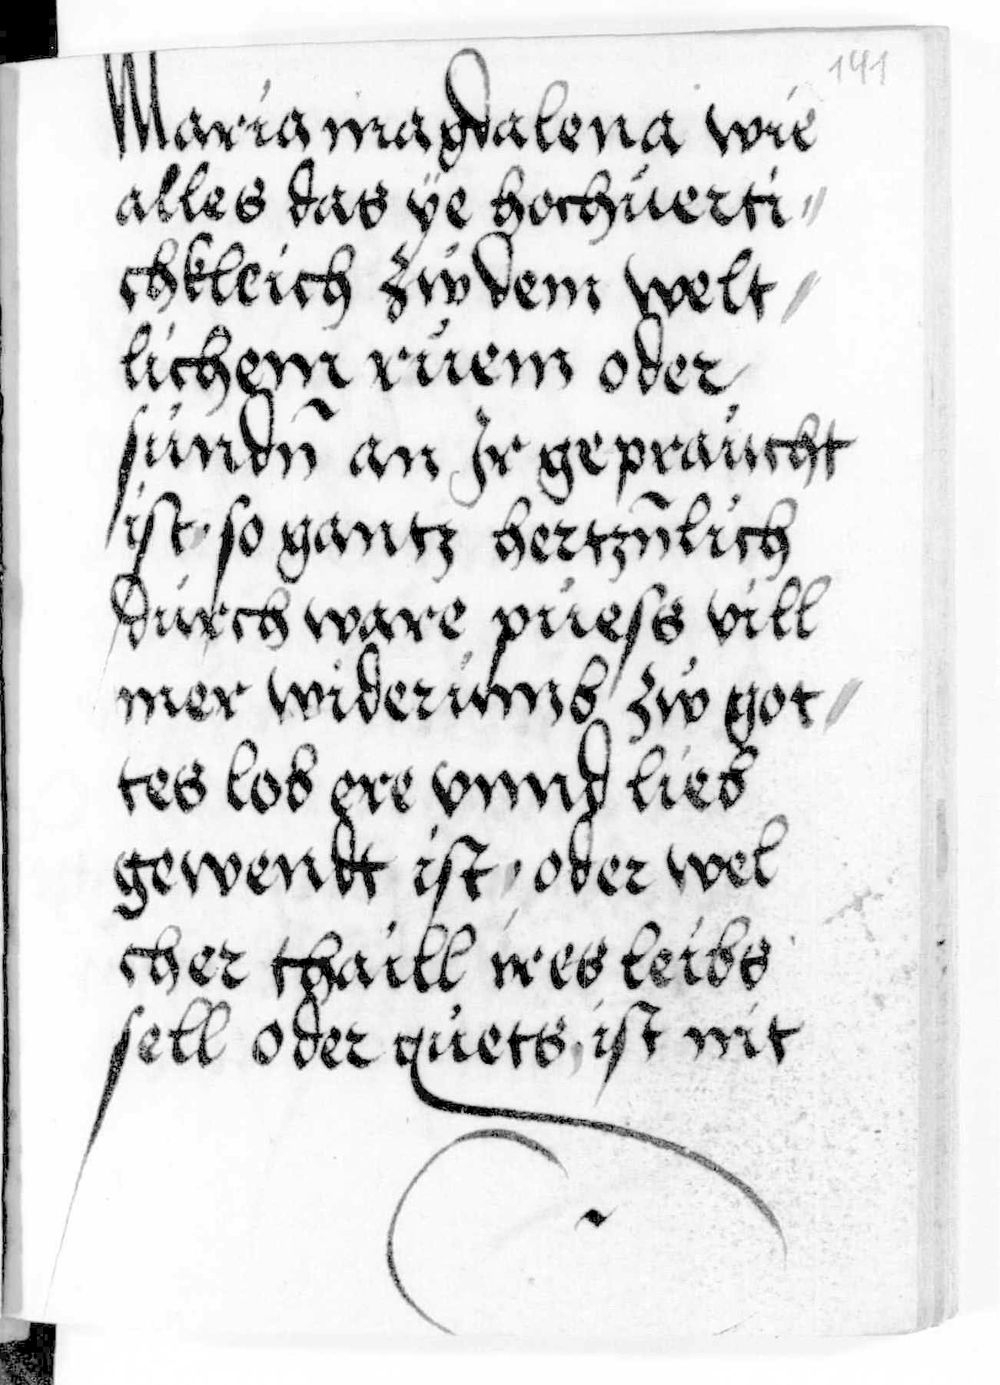 141
Maria magdalena wie
alles das ÿe hochuerti〃
chkleich zw dem welt〃
lichem ruem oder
sundn̄ an Ir gepraucht
ist. so gantz hertzn̄lich
durch ware puess vill
mer widerumb zw got〃
tes lob ere vnnd lieb
gewendt ist, oder wel
cher thaill ires leibs
sell oder guets, ist nit